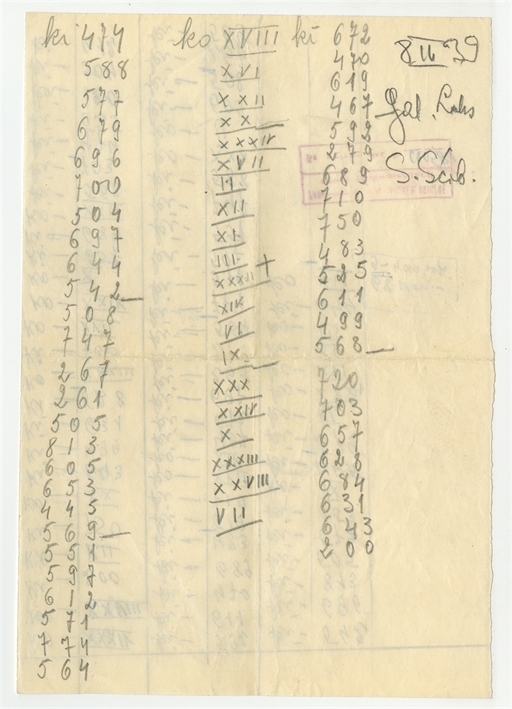 ki 474
588
577
679
696
700
504
697
644
542 —
508
747
267
261
505
813
605
653
445
569 —
551
597
612
571
774
564
ko XVIII
XVI
XXII
XX —
XXXIV
XVII
II
XII
XI
III +
XIV
VI
IX —
XXX
XXIV
X
XXXIII
XXVIII
VII
ki 672
470
619
467
592
279
689
710
750
483
525
611
499
568 —
720
703
657
628
684
631
643
200
8 II 39
S. Scrb.